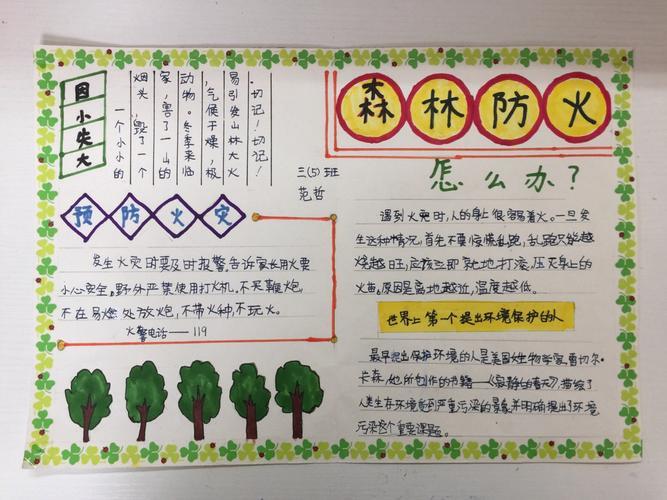 因小失大
一个小小的
烟头,毁了一个
家,害了一山的
动物。冬季来临
,气候干燥,极
易引发山林大火
。切记!切记!
三(5)班
范哲
森林防火
怎么办?
遇到火灾时,人的身上很容易着火。一旦发
生这种情况,首先不要惊慌乱跑,乱跑只能越
烧越旺,应该立即就地打滚,压灭身上的
火苗,原因是离地越近,温度越低。
预防火灾
发生火灾时要及时报警,告诉家长用火要
小心安全。野外严禁使用打火机,不买鞭炮,
不在易燃处放炮,不带火种,不玩火。
火警电话——119
世界上第一个提出环境保护的人
最早提出保护环境的人是美国女生物学家雷切尔·
卡森,他所创作的书籍——《寂静的春天》,描绘了
人类生存环境受到严重污染的景象,并明确提出了环境
污染这个重要课题。